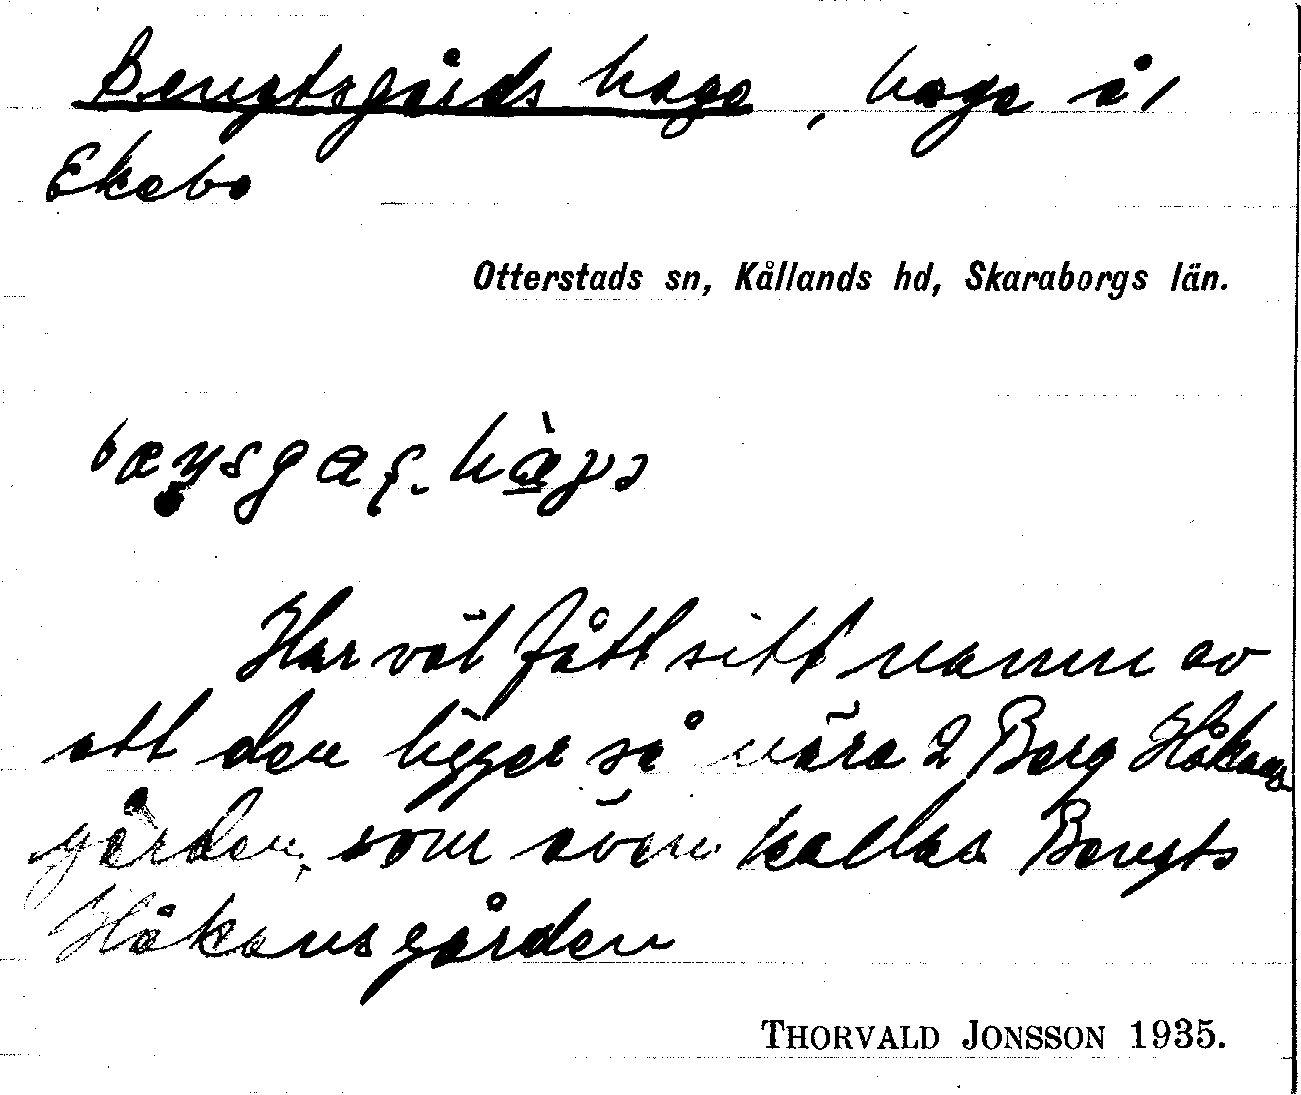 Bengtsgårds haga, haga å 1
Ekebo
Otterstads sn, Kållands hd, Skaraborgs län.
Har väl fått sitt namn av
att den ligger så nära 2 Berg Håkans
gården, som även kallas Bengts
Håkansgården
THORVALD JONSSON 1935.